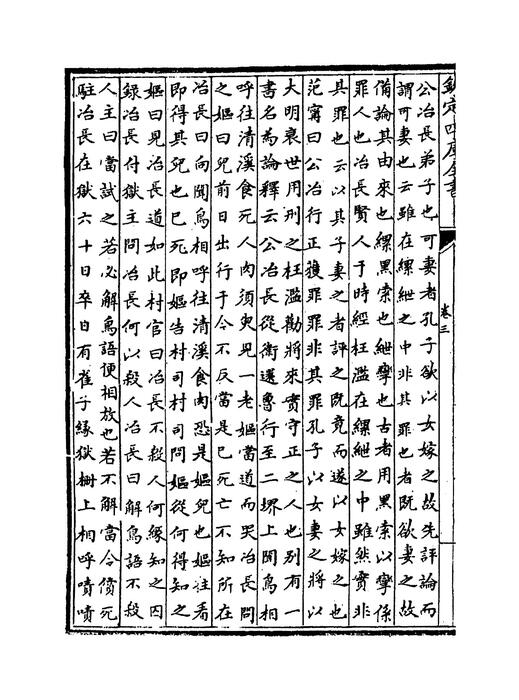 欽定四庫全書
卷三
公冶長弟子也可妻者孔子欲以女嫁之故先評論而
謂可妻也云雖在縲絏之中非其罪也者既欲妻之故
備論其由來也縲黑索也絏攣也古者用黑索以攣係
罪人也冶長賢人于時經枉濫在縲絏之中雖然實非
其罪也云以其子妻之者評之既竟而遂以女嫁之也
范寗曰公冶行正獲罪罪非其罪孔子以女妻之將以
大明衰世用刑之枉濫勸將來實守正之人也别有一
書名為論釋云公冶長從衛還魯行至二堺上聞鳥相
呼往清溪食死人肉須臾見一老嫗當道而哭冶長問
之嫗曰兒前日出行于今不反當是已死亡不知所在
冶長曰向聞鳥相呼往清溪食肉恐是嫗兒也嫗往看
即得其兒也已死即嫗告村司村司問嫗從何得知之
嫗曰見冶長道如此村官曰冶長不殺人何緣知之囚
録冶長付獄主問冶長何以殺人冶長曰解鳥語不殺
人主曰當試之若必解鳥語便相放也若不解當令償死
駐冶長在獄六十日卒日有雀子緣獄樹上相呼嘖嘖